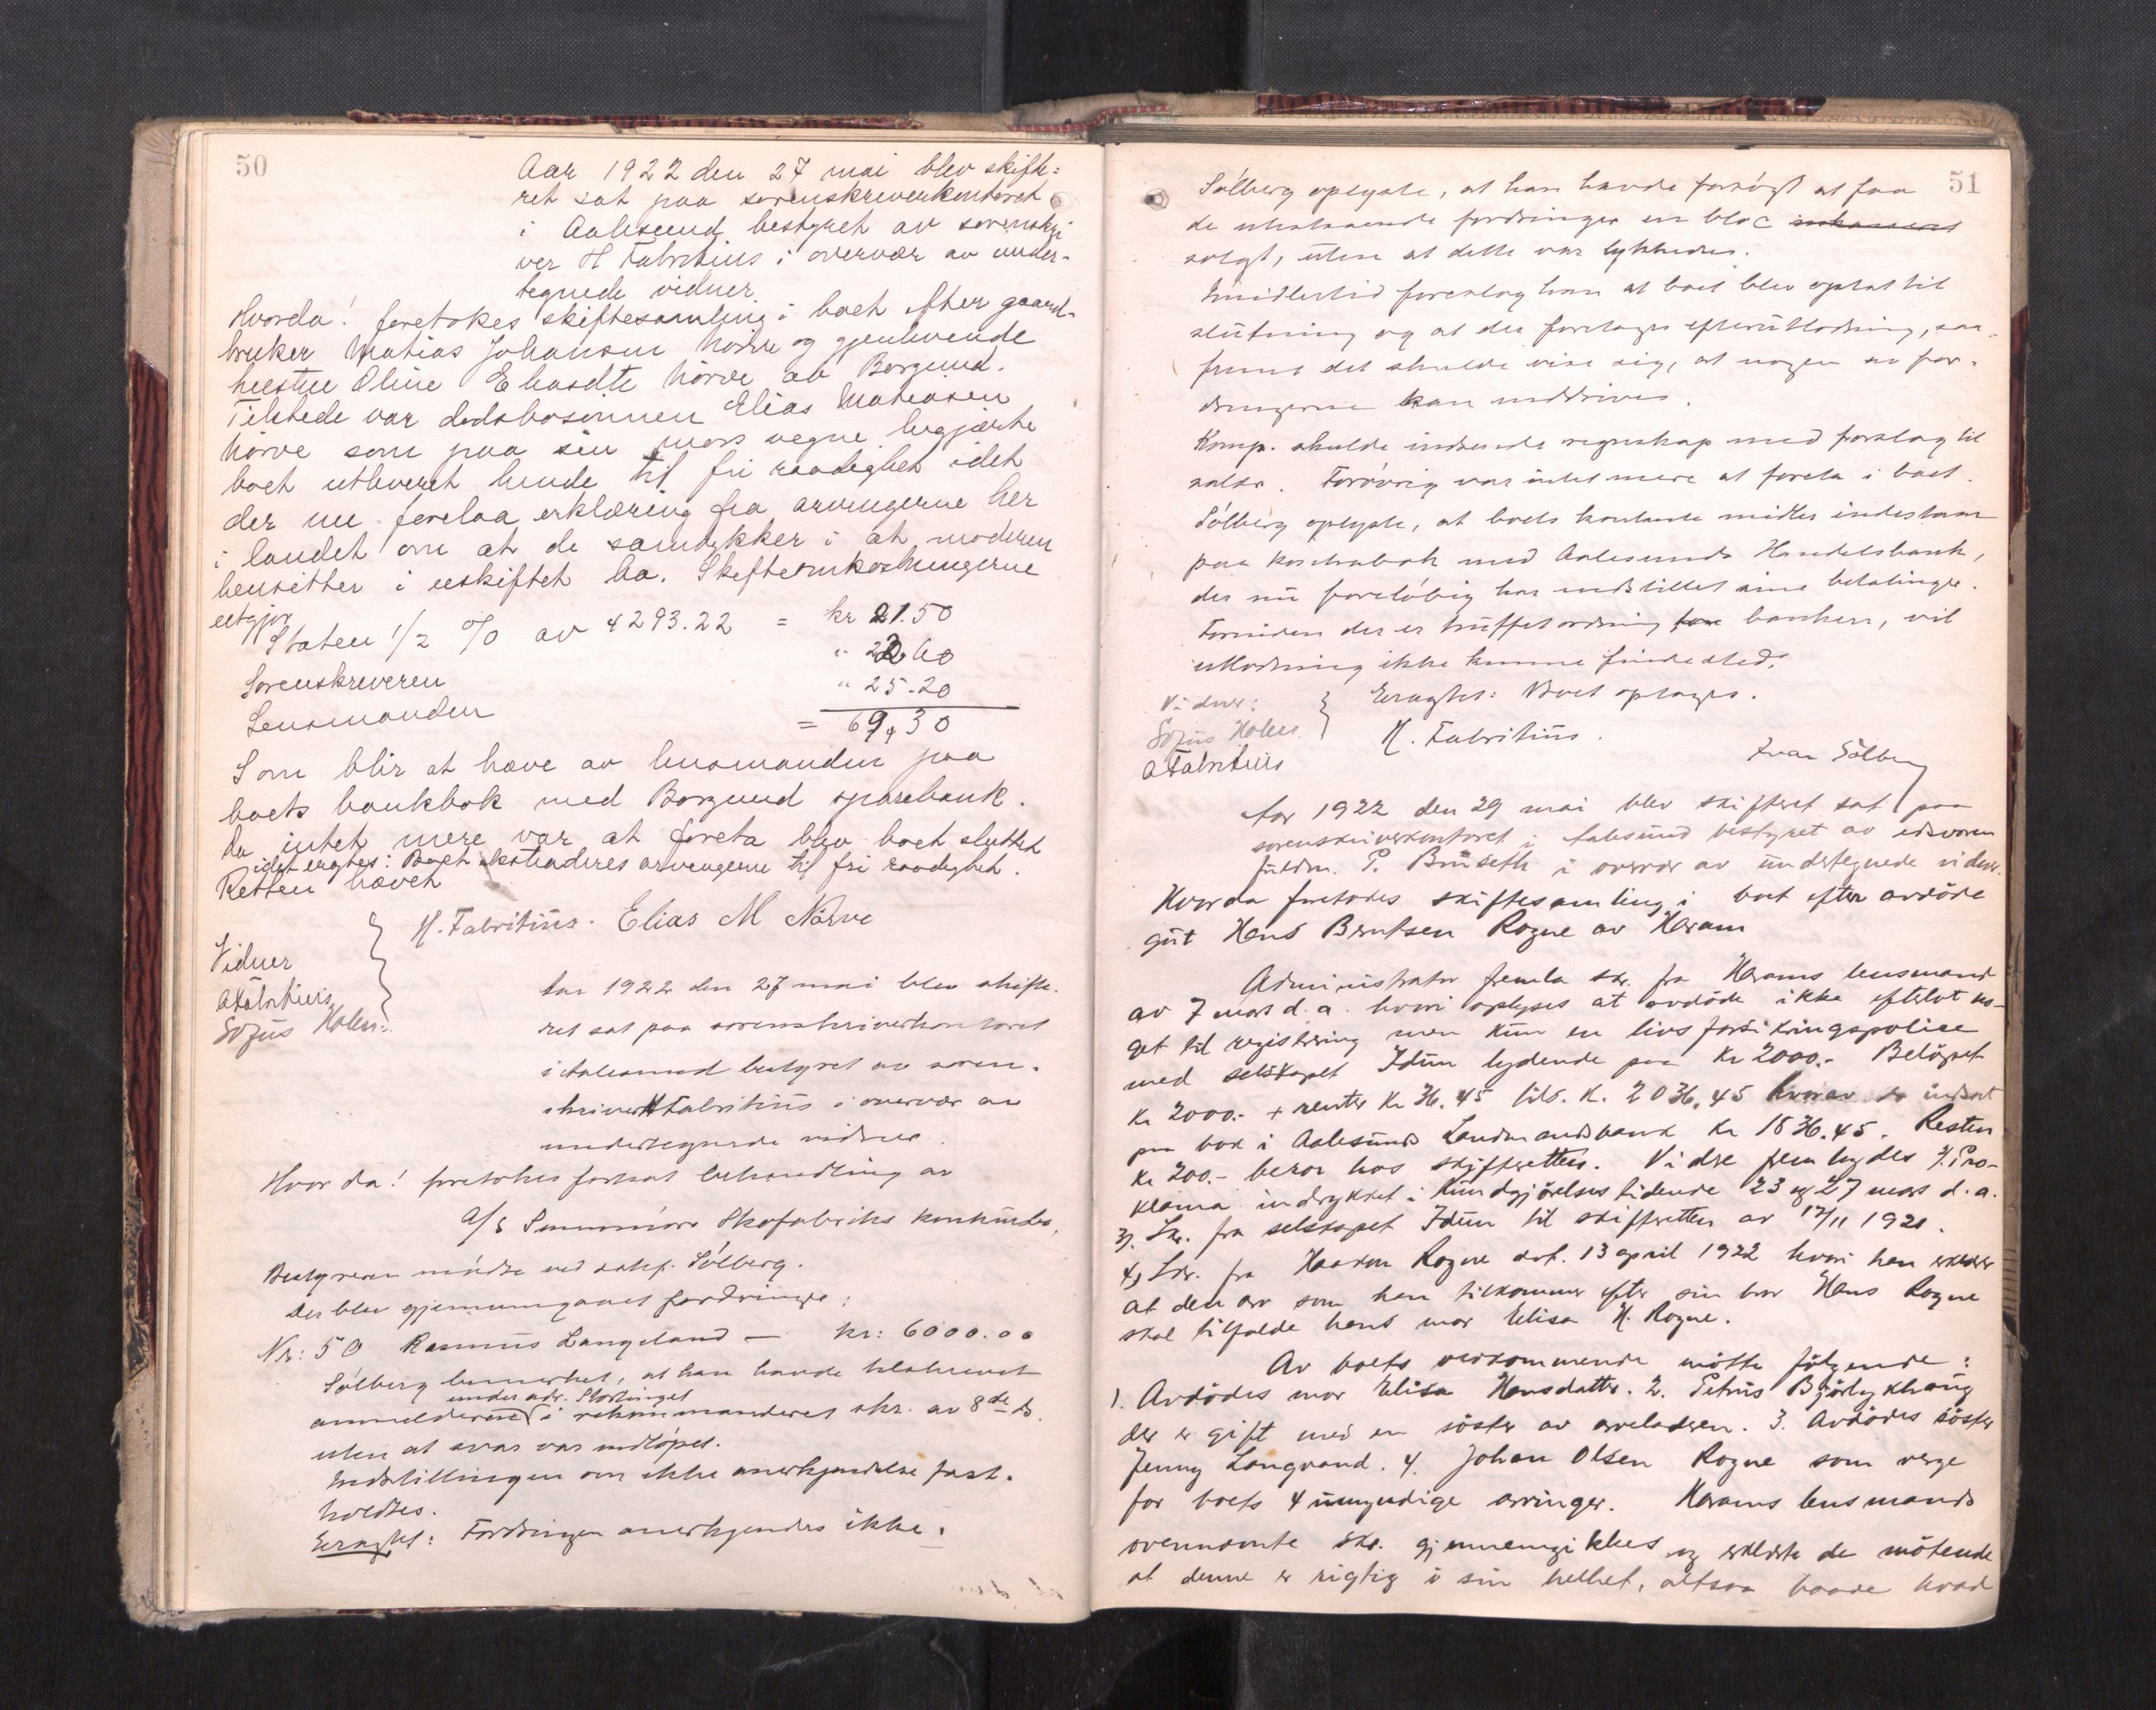 50
Aar 1922 den 27 mai blev skifte-
ret sat paa sorenskriverkontoret
i Aalesund bestyret av sorenskri
ver H Fabritius i overvær av under-
tegnede vidner
Hvorda! foretokes skiftesamling i boet efter gaard-
bruker Matias Johansen Nörve og gjenlevende
hustru Oline Eliasdtr Nörve av Borgund.
Tilstede var dødsbosønnen Elias Matiasen
Nörve som paa sin mors vegne begjærte
boet utleveret hende til fri raadighet idet
der nu forelaa erklæring fra arvingerne her
i landet om at de samtykker i at moderen
hensitter i uskiftet bo. Skifteomkostningerne
utgjør
Staten 1/2 % av 4293.22 = kr 21.50
Sorenskriveren " 22.60
Lensmanden " 25.20
= 69.30
Som blir at hæve av lensmanden paa
boets bankbok med Borgund sparebank.
Da intet mere var at foreta blev boet sluttet
idet eragtes: Boet extraderes arvingerne til fri raadighet.
Retten hævet
H. Fabritius. Elias M Nörve
Vidner
A Fabritius
Sofus Holen
Aar 1922 den 27 mai blev skifte-
ret sat paa sorenskriverkontoret
i Aalesund bestyret av soren-
skriver H Fabritius i overvær av
undertegnede vidner.
Hvor da! foretokes fortsat behandling av
a/s Sunnmöre Skofabriks konkursbo.
Bestyreren mødte ved sakf. Sólberg.
Der blev gjennemgaaet fordringer:
Nr: 50 Rasmus Langeland — kr: 6000.00
Sólberg bemerket, at han havde tilskrevet
under adr. Stortinget
anmelderen i rekommanderet skr. av 8de ds.
uten at svar var indlöpet.
Indstillingen om ikke anerkjendelse fast-
holdtes.
Eragtet: Fordringen anerkjendes ikke.
51
Sólberg oplyste, at han havde forsögt at faa
de utestaaende fordringer en bloc
solgt, uten at dette var lykkedes.
Imidlertid foreslog han at boet blev optat til
slutning og at der foretages efterutlodning, saa-
fremt det skulde vise sig, at nogen av for-
dringerne kan inddrives.
Komp. skulde indsende regnskap med forslag til
salær. Forövrig var intet mere at foreta i boet.
Sólberg oplyste, at boets kontante midler indestaar
paa kontrabok med Aalesunds Handelsbank,
der nu foreløbig har indstillet sine betalinger.
Forinden der er truffet ordning for banken, vil
utlodning ikke kunne finde sted.
Vidner: Eragtet: Boet optages.
Sofus Holen H. Fabritius.
A Fabritius
Ivar Sólberg
Aar 1922 den 29 mai blev skifteret sat paa
sorenskriverkontoret i Aalesund bestyret av edsvoren
fuldm. P. Bruseth i overvær av undertegnede vidner.
Hvorda foretokes skiftesamling i boet efter avdöde
gut Hans Berntsen Rogne av Haram
Administrator fremla skr. fra Harams lensmand
av 7 mars d. a. hvori oplyses at avdöde ikke efterlot no-
get til registrering men kun en livsforsikringspolice
med selskapet Idun lydende paa Kr 2000.- Belöpet
Kr 2000.- + renter Kr 36.45 tils. K. 2036.45 hvorav er indsat
paa bok i Aalesunds Landmandsbank Kr 1836.45. Resten
Kr 200.- beror hos skifteretten. Vidre fremlagdes 2. Pro-
klama indrykket i Kundgjörelsestidende 23 og 27 mars d. a.
3). Skr. fra selskapet Idun til skifteretten av 17/11 1921.
4) Skr. fra Haakon Rogne dat. 13 april 1922 hvori han erklærer
at den arv som han tilkommer efter sin bror Hans Rogne
skal tilfalde hans mor Elisa H. Rogne.
Av boets vedkommende mötte fölgende:
1. Avdödes mor Elisa Hansdatter. 2. Petrus Björlykhaug
der er gift med en söster av arveladeren. 3. Avdödes söster
Jenny Langvand. 4. Johan Olsen Rogne som verge
for boets 4 umyndige arvinger. Harams lensmands
ovennævnte skr. gjennemgikkes og erklærte de mötende
at denne er rigtig i sin helhet, altsaa baade hvad